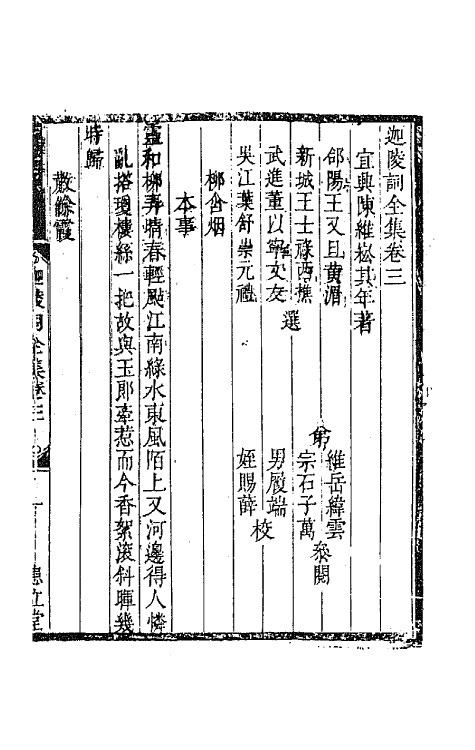 迦陵詞全集卷三
宜興陳維崧其年著
郃陽王又旦黃湄
新城王士祿西樵
武進董以寧文友
吳江葉舒崇元禮
選
弟
維岳緯雲
宗石子萬
叅閱
男履端
姪賜薛
校
柳含烟
本事
靈和柳弄晴春輕颭江南綠水東風陌上又河邊得人憐
亂搭瓊樓絲一把故與玉郎牽惹而今香絮滚斜暉幾
時歸
散餘霞
迦陵詞全集卷三
患立堂